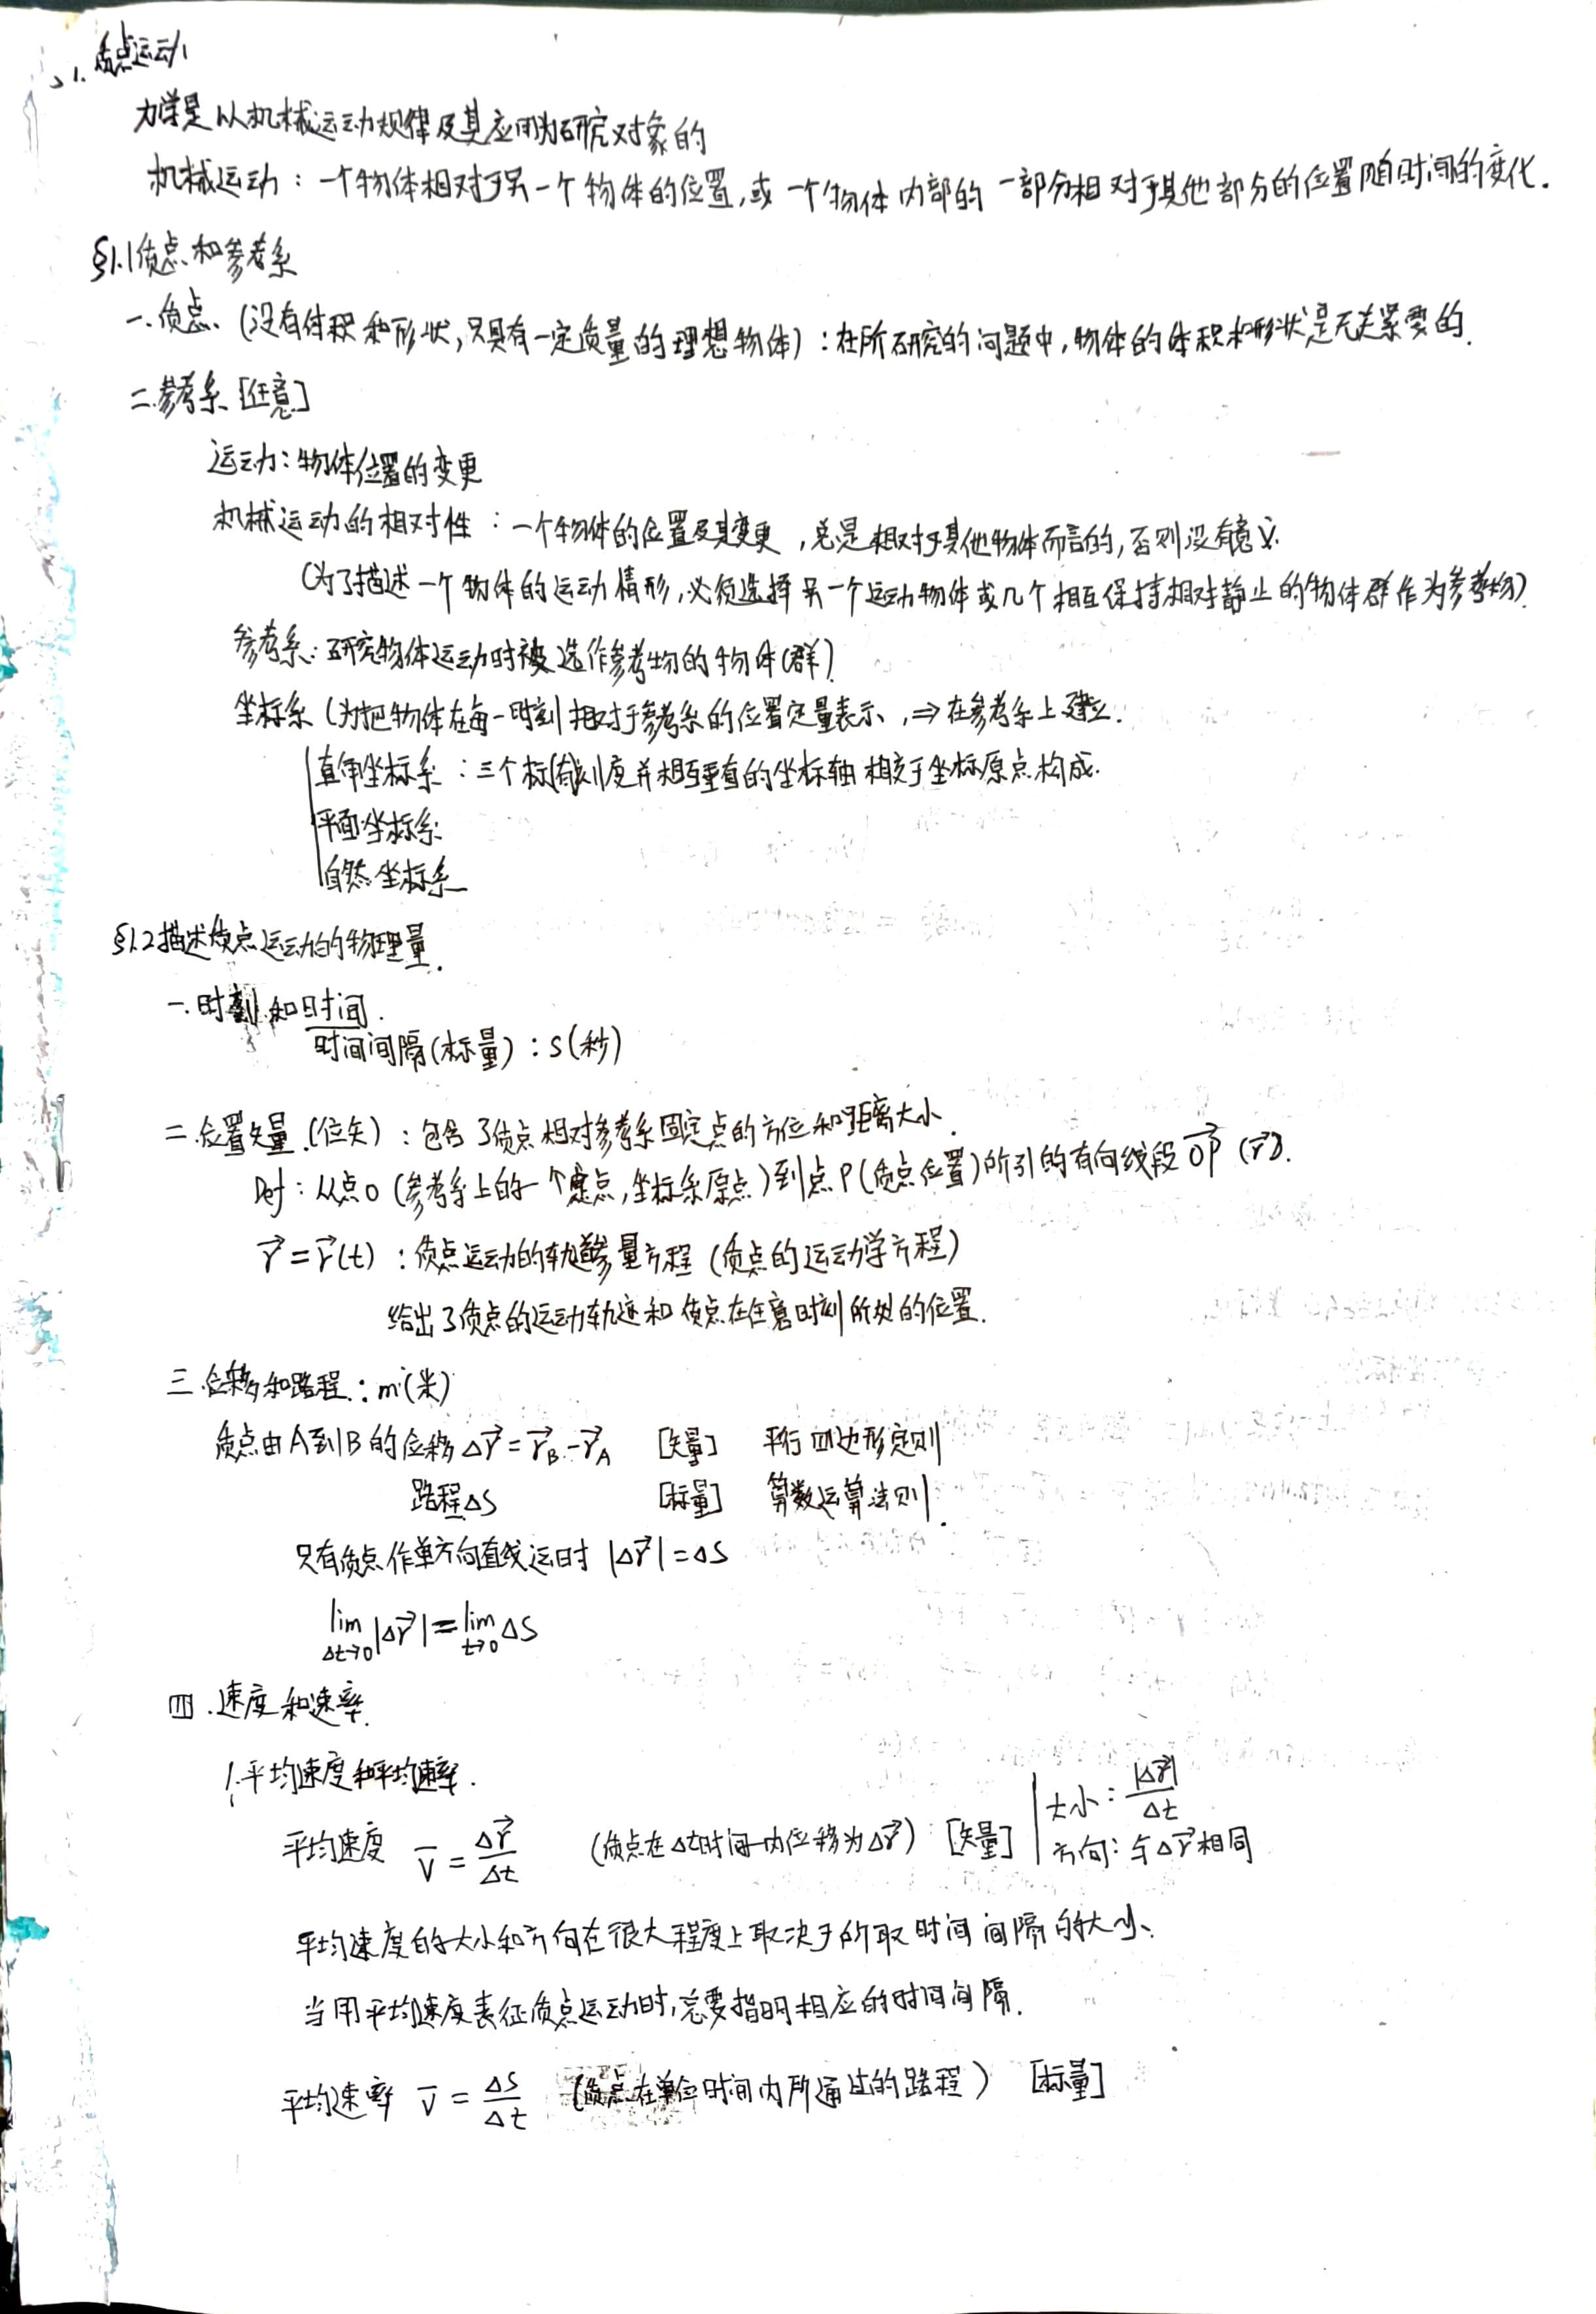 1. 质点运动
力学是以机械运动规律及其应用为研究对象的
机械运动：一个物体相对于另一个物体的位置,或一个物体内部的一部分相对于其他部分的位置随时间的变化.
§1.1质点和参考系
一.质点、(没有体积和形状,只具有一定质量的理想物体)：在所研究的问题中,物体的体积和形状是无关紧要的.
二.参考系 [任意]
运动：物体位置的变更
机械运动的相对性：一个物体的位置及其变更,总是相对于其他物体而言的,否则没有意义.
(为了描述一个物体的运动情形,必须选择另一个运动物体或几个相互保持相对静止的物体群作为参考物)
参考系：研究物体运动时被选作参考物的物体(群)
坐标系(为把物体在每一时刻相对于参考系的位置定量表示、,⇒在参考系上建立.
直角坐标系：三个标有刻度并相互垂直的坐标轴相交于坐标原点构成.
平面坐标系
自然坐标系
§1.2描述质点运动的物理量.
一.时刻和时间.
时间间隔(标量)：s(秒)
二.位置矢量.(位矢)：包含了质点相对参考系固定点的方位和距离大小.
Def：从点O(参考系上的一个定点,坐标系原点)到点P(质点位置)所引的有向线段 $\vec{OP}$ ($\vec{r}$).
$\vec{r}=\vec{r}(t)$：质点运动的轨道参量方程(质点的运动学方程)
给出了质点的运动轨迹和质点在任意时刻所处的位置.
三.位移和路程：m(米)
质点由A到B的位移 $\Delta\vec{r}=\vec{r}_B-\vec{r}_A$ [矢量] 平行四边形定则
路程ΔS [标量] 算数运算法则.
只有质点作单方向直线运时 $|\Delta\vec{r}|=\Delta S$
$\lim_{\Delta t\to 0}|\Delta\vec{r}|=\lim_{t\to 0}\Delta S$
四.速度和速率.
1.平均速度和平均速率.
平均速度 $\overline{v}=\frac{\Delta\vec{r}}{\Delta t}$ (质点在Δt时间内位移为$\Delta\vec{r}$) [矢量] 大小：$\frac{|\Delta\vec{r}|}{\Delta t}$
方向：与$\Delta\vec{r}$相同
平均速度的大小和方向在很大程度上取决于所取时间间隔的大小、
当用平均速度表征质点运动时,总要指明相应的时间间隔.
平均速率 $\overline{v}=\frac{\Delta S}{\Delta t}$ (质点在单位时间内所通过的路程) [标量]